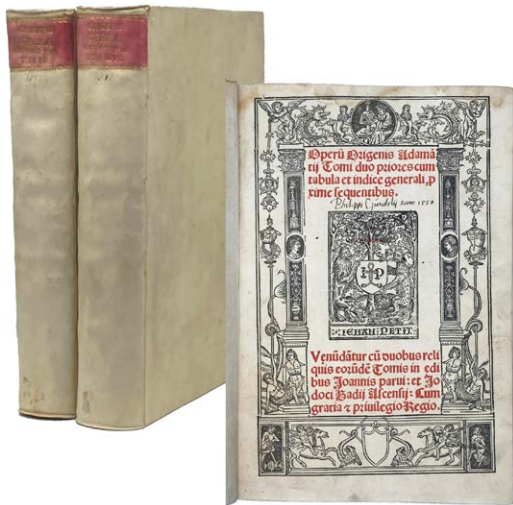 Operū Origenis Adamā
tij Tomi duo priores cum
tabula et indice generali, ꝓ
xime sequentibus.
Philippi Gundelij sum 1550
IP
IEHAN PETIT
Venūdātur cū duobus reli
quis eozūdē Tomis in edi
bus Joannis parui: et Jo
doci Badij Ascensij: Cum
gratia ⁊ priuilegio Regio.